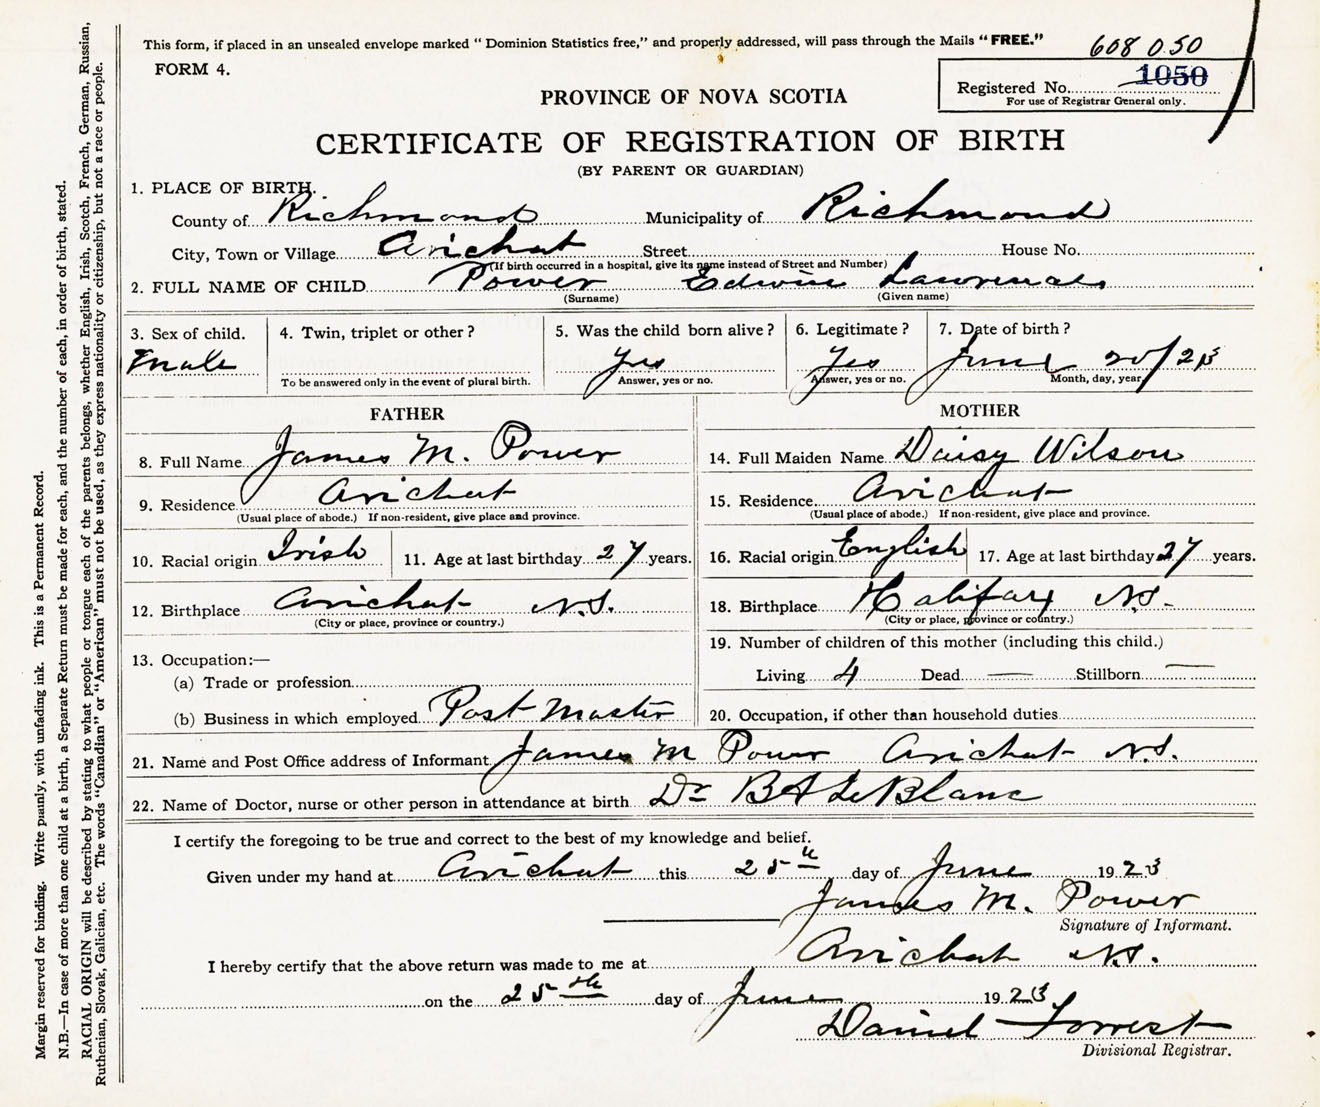 This form, if placed in an unsealed envelope marked " Dominion Statistics free," and properly addressed, will pass through the Mails "FREE."
608 0 50
FORM 4.
1050
Registered No.
For use of Registrar General only.
PROVINCE OF NOVA SCOTIA
CERTIFICATE OF REGISTRATION OF BIRTH
(BY PARENT OR GUARDIAN)
1. PLACE OF BIRTH.
County of Richmond Municipality of Richmond
City, Town or Village Arichat Street House No.
(If birth occurred in a hospital, give its name instead of Street and Number)
2. FULL NAME OF CHILD Power Edwin Lawrence
(Surname) (Given name)
3. Sex of child. 4. Twin, triplet or other ? 5. Was the child born alive ? 6. Legitimate ? 7. Date of birth ?
Male Yes Yes June 20/23
To be answered only in the event of plural birth. Answer, yes or no. Answer, yes or no. Month, day, year
FATHER MOTHER
8. Full Name James M. Power 14. Full Maiden Name Daisy Wilson
9. Residence Arichat 15. Residence Arichat
(Usual place of abode.) If non-resident, give place and province. (Usual place of abode.) If non-resident, give place and province.
10. Racial origin Irish 11. Age at last birthday 27 years. 16. Racial origin English 17. Age at last birthday 27 years.
12. Birthplace Arichat N.S. 18. Birthplace Halifax N.S.
(City or place, province or country.) (City or place, province or country.)
19. Number of children of this mother (including this child.)
13. Occupation:—
(a) Trade or profession Living 4 Dead — Stillborn —
(b) Business in which employed Post Master 20. Occupation, if other than household duties
21. Name and Post Office address of Informant James M Power Arichat N.S.
22. Name of Doctor, nurse or other person in attendance at birth Dr B A LeBlanc
I certify the foregoing to be true and correct to the best of my knowledge and belief.
Given under my hand at Arichat this 25th day of June 1923
James M. Power
Signature of Informant.
I hereby certify that the above return was made to me at Arichat N.S.
on the 25th day of June 1923
Daniel Forrest
Divisional Registrar.
Margin reserved for binding. Write plainly, with unfading ink. This is a Permanent Record.
N.B.—In case of more than one child at a birth, a Separate Return must be made for each, and the number of each, in order of birth, stated.
RACIAL ORIGIN will be described by stating to what people or tongue each of the parents belongs, whether English, Irish, Scotch, French, German, Russian,
Ruthenian, Slovak, Galician, etc. The words "Canadian" or "American" must not be used, as they express nationality or citizenship, but not a race or people.